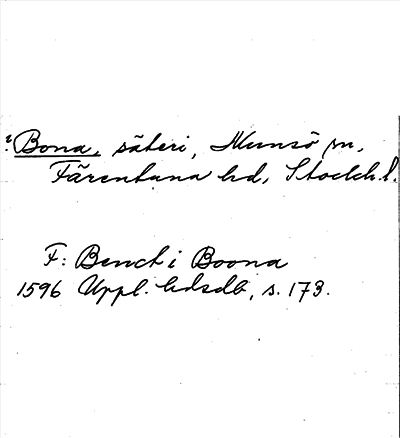 Bona, säteri, Munsö sn,
Färentuna hd, Stockh. l.
F: Benct i Boona
1596 Uppl. hdsdb, s. 173.